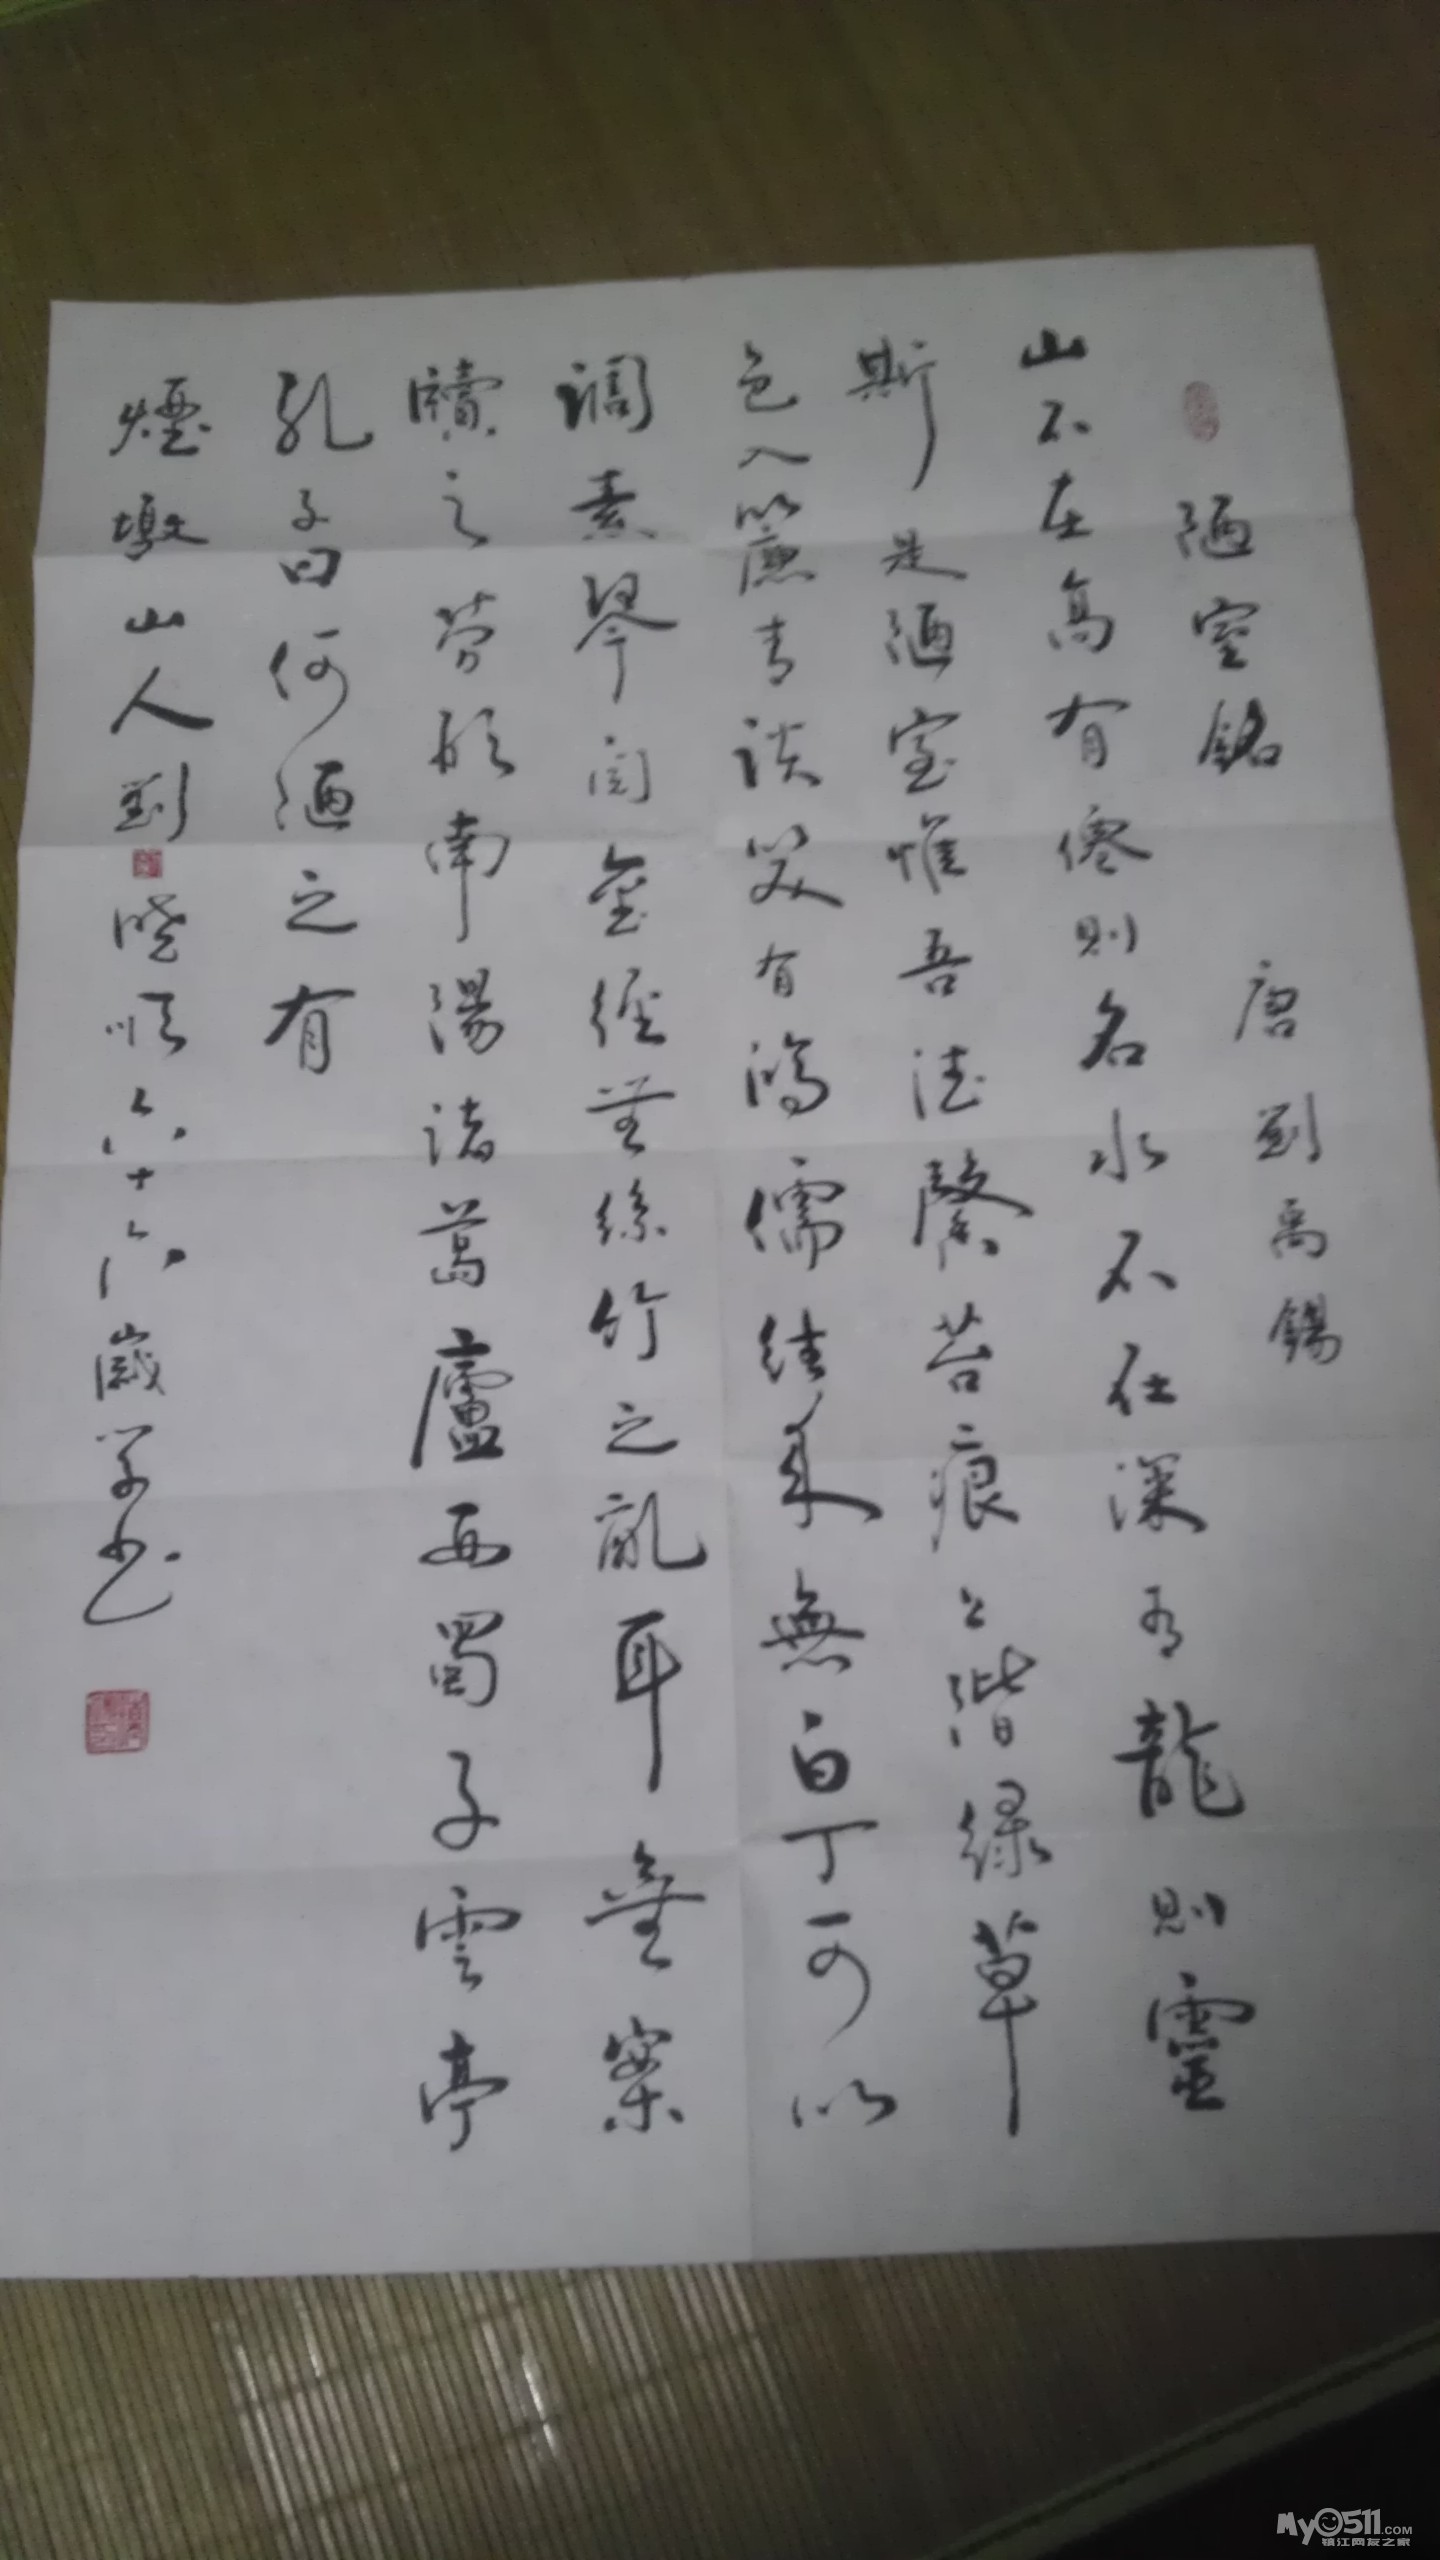 陋室銘 唐 劉禹錫
山不在高有僊則名水不在深有龍則靈
斯是陋室惟吾德馨苔痕上階綠草
色入簾青談笑有鴻儒往來無白丁可以
調素琴閱金經無絲竹之亂耳無案
牘之勞形南陽諸葛廬西蜀子雲亭
孔子曰何陋之有
煙墩山人劉曉順六十六歲學書
My0511.COM
镇江网友之家